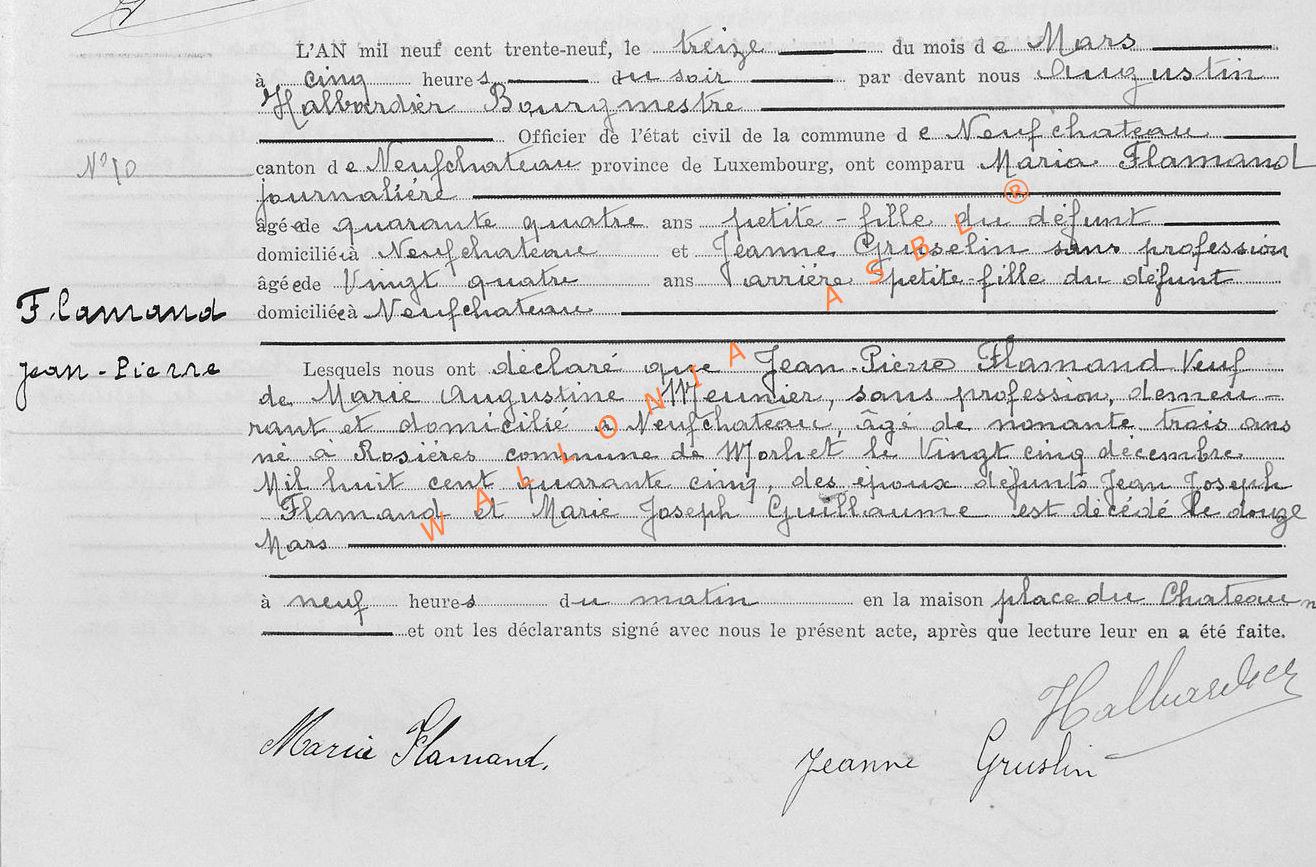 L'AN mil neuf cent trente-neuf, le treize du mois de Mars
à cinq heures du soir par devant nous Augustin
Halbardier Bourgmestre
Officier de l'état civil de la commune de Neufchateau
N° 10
canton de Neufchateau province de Luxembourg, ont comparu Maria Flamand
journalière
âgée de quarante quatre ans petite-fille du défunt
domiciliée à Neufchateau et Jeanne Gruselin sans profession
âgée de Vingt quatre ans arrière petite-fille du défunt
Flamand
domiciliée à Neufchateau
Jean-Pierre
Lesquels nous ont déclaré que Jean-Pierre Flamand Veuf
de Marie Augustine Meunier, sans profession, demeu-
rant et domicilié à Neufchateau, âgé de nonante trois ans
né à Rosières commune de Morhet le Vingt cinq décembre
Mil huit cent quarante cinq, des époux défunts Jean Joseph
Flamand et Marie Joseph Guillaume est décédé le douze
Mars
WALLONIA ASBL ®
à neuf heures du matin en la maison place du Chateau
et ont les déclarants signé avec nous le présent acte, après que lecture leur en a été faite.
Halbardier
Maria Flamand.
Jeanne Gruslin